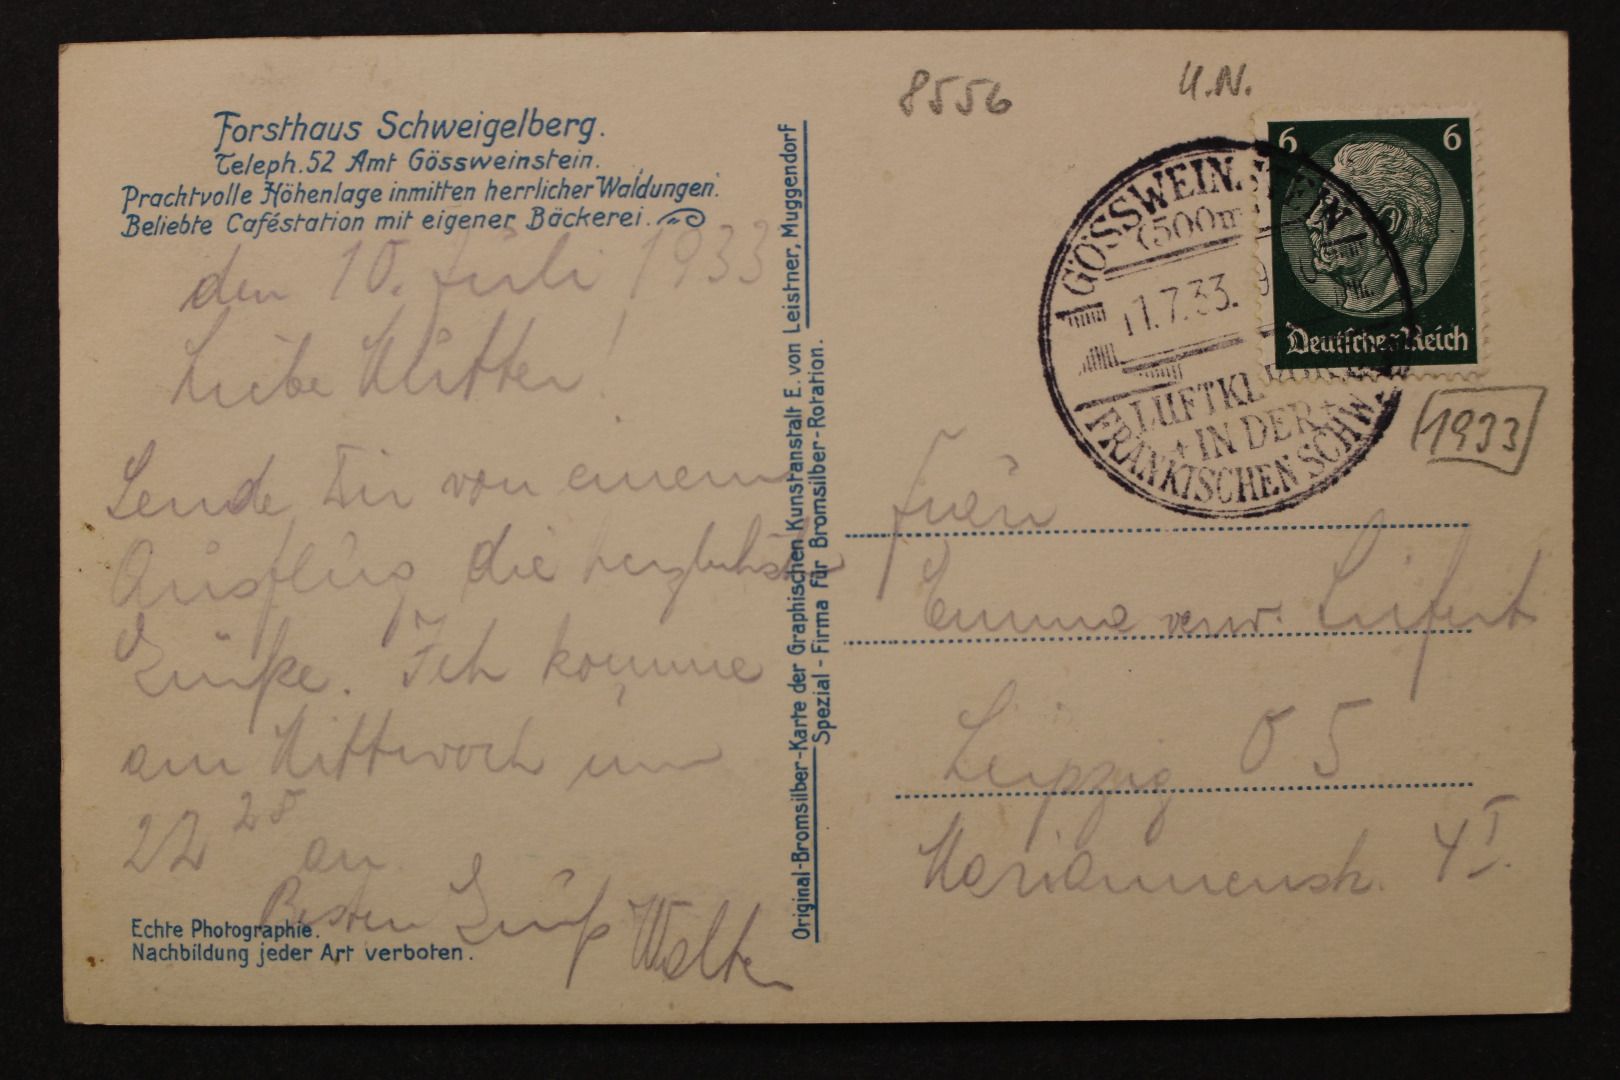 8556
U.N.
Forsthaus Schweigelberg.
Teleph. 52 Amt Gössweinstein.
Prachtvolle Höhenlage inmitten herrlicher Waldungen.
Beliebte Caféstation mit eigener Bäckerei.
den 10. Juli 1933
Liebe Mutter!
Sende Dir von einem
Ausflug die herzlichsten
Grüße. Ich komme
am Mittwoch um
22 25 an
Besten Gruß Walter
Echte Photographie.
Nachbildung jeder Art verboten.
Original-Bromsilber-Karte der Graphischen Kunstanstalt E. von Leistner, Muggendorf
Spezial-Firma für Bromsilber-Rotation.
GÖSSWEINSTEIN
(500m
11.7.33.
LUFTKURORT
IN DER
FRÄNKISCHEN SCHW.
6 6
Deutsches Reich
1933
Frau
Emma verw.
Leipzig O 5
Mariannenstr. 4 I.